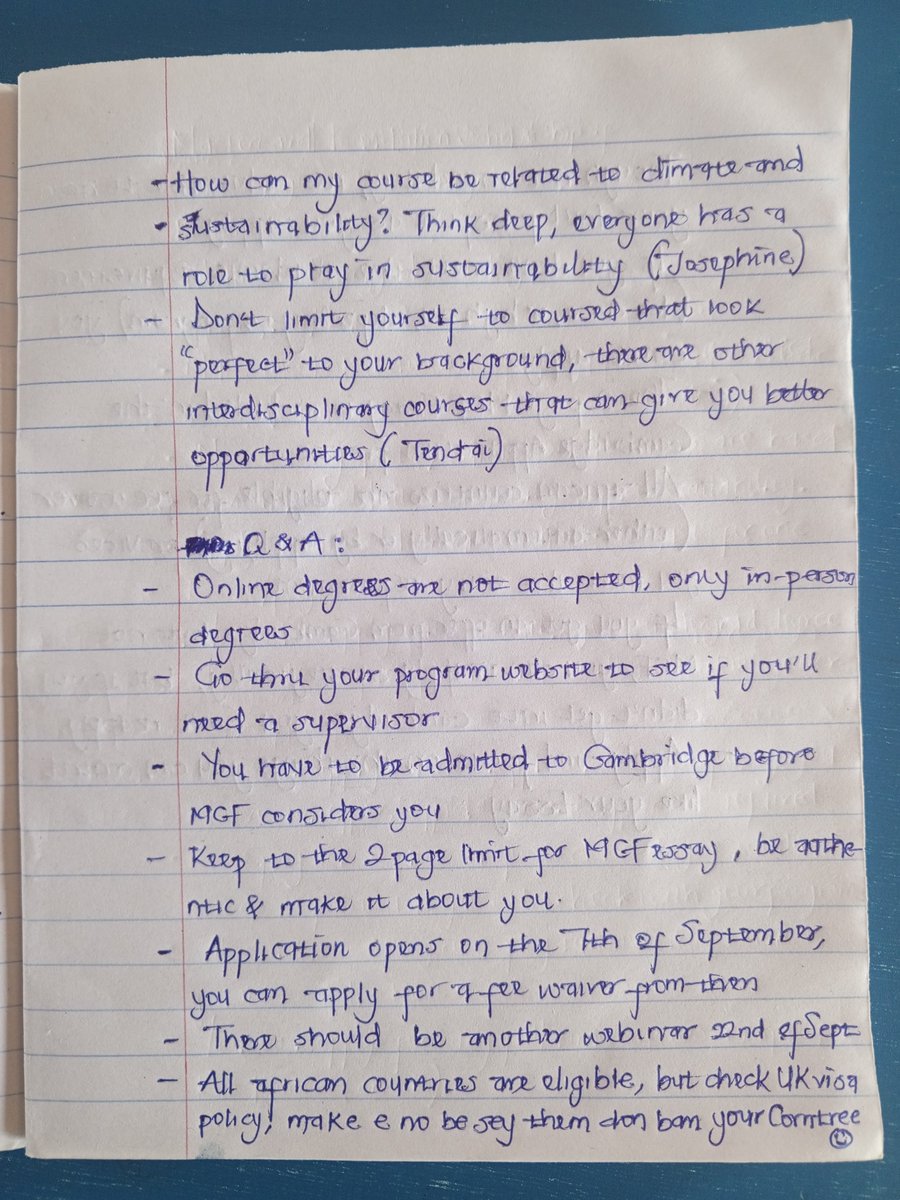 - How can my course be related to climate and
- sustainability? Think deep, everyone has a
role to pray in sustainability (Josephine)
- Don't limit yourself to coursed that look
"perfect" to your background, there are other
interdisciplinary courses that can give you better
opportunities (Tendai)
Q & A :
- Online degrees are not accepted, only in-person
degrees
- Go thru your program website to see if you'll
need a supervisor
- You have to be admitted to Cambridge before
MGF considers you
- Keep to the 2 page limit for MGF essay, be authe-
ntic & make it about you.
- Application opens on the 7th of September,
you can apply for a fee waiver from then
- There should be another webinar 22nd of Sept
- All african countries are eligible, but check UK visa
policy! make e no be sey them don ban your Corntree